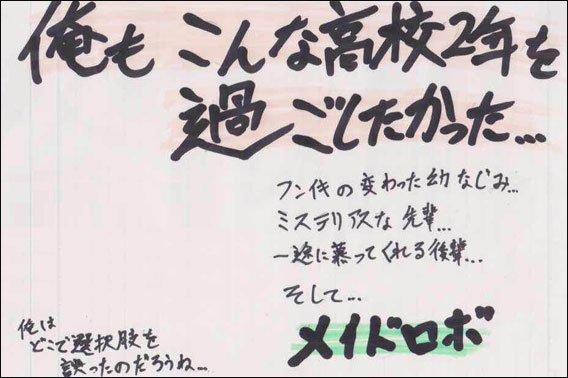 俺もこんな高校2年を
過ごしたかった…
フンイキの変わった幼なじみ…
ミステリアスな先輩…
一途に慕ってくれる後輩…
そして…
メイドロボ
俺は
どこで選択肢を
誤ったのだろうね…